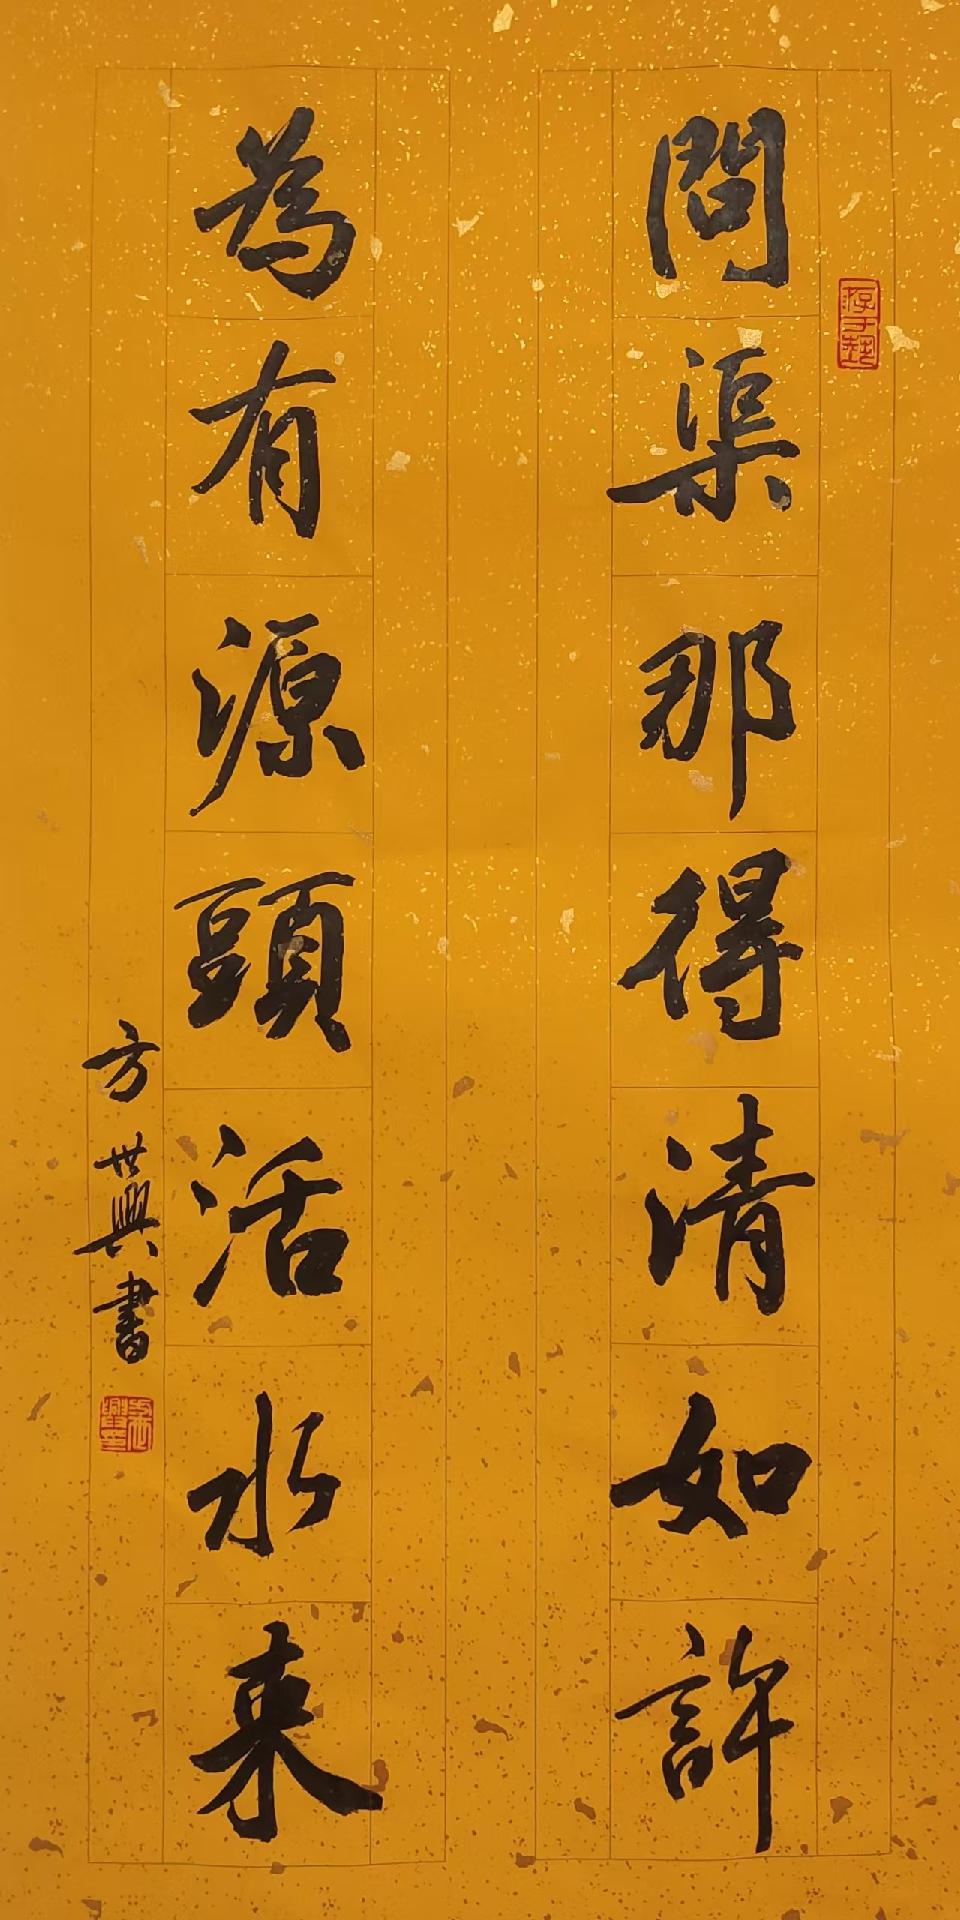 問渠那得清如許
為有源頭活水来
方世興書